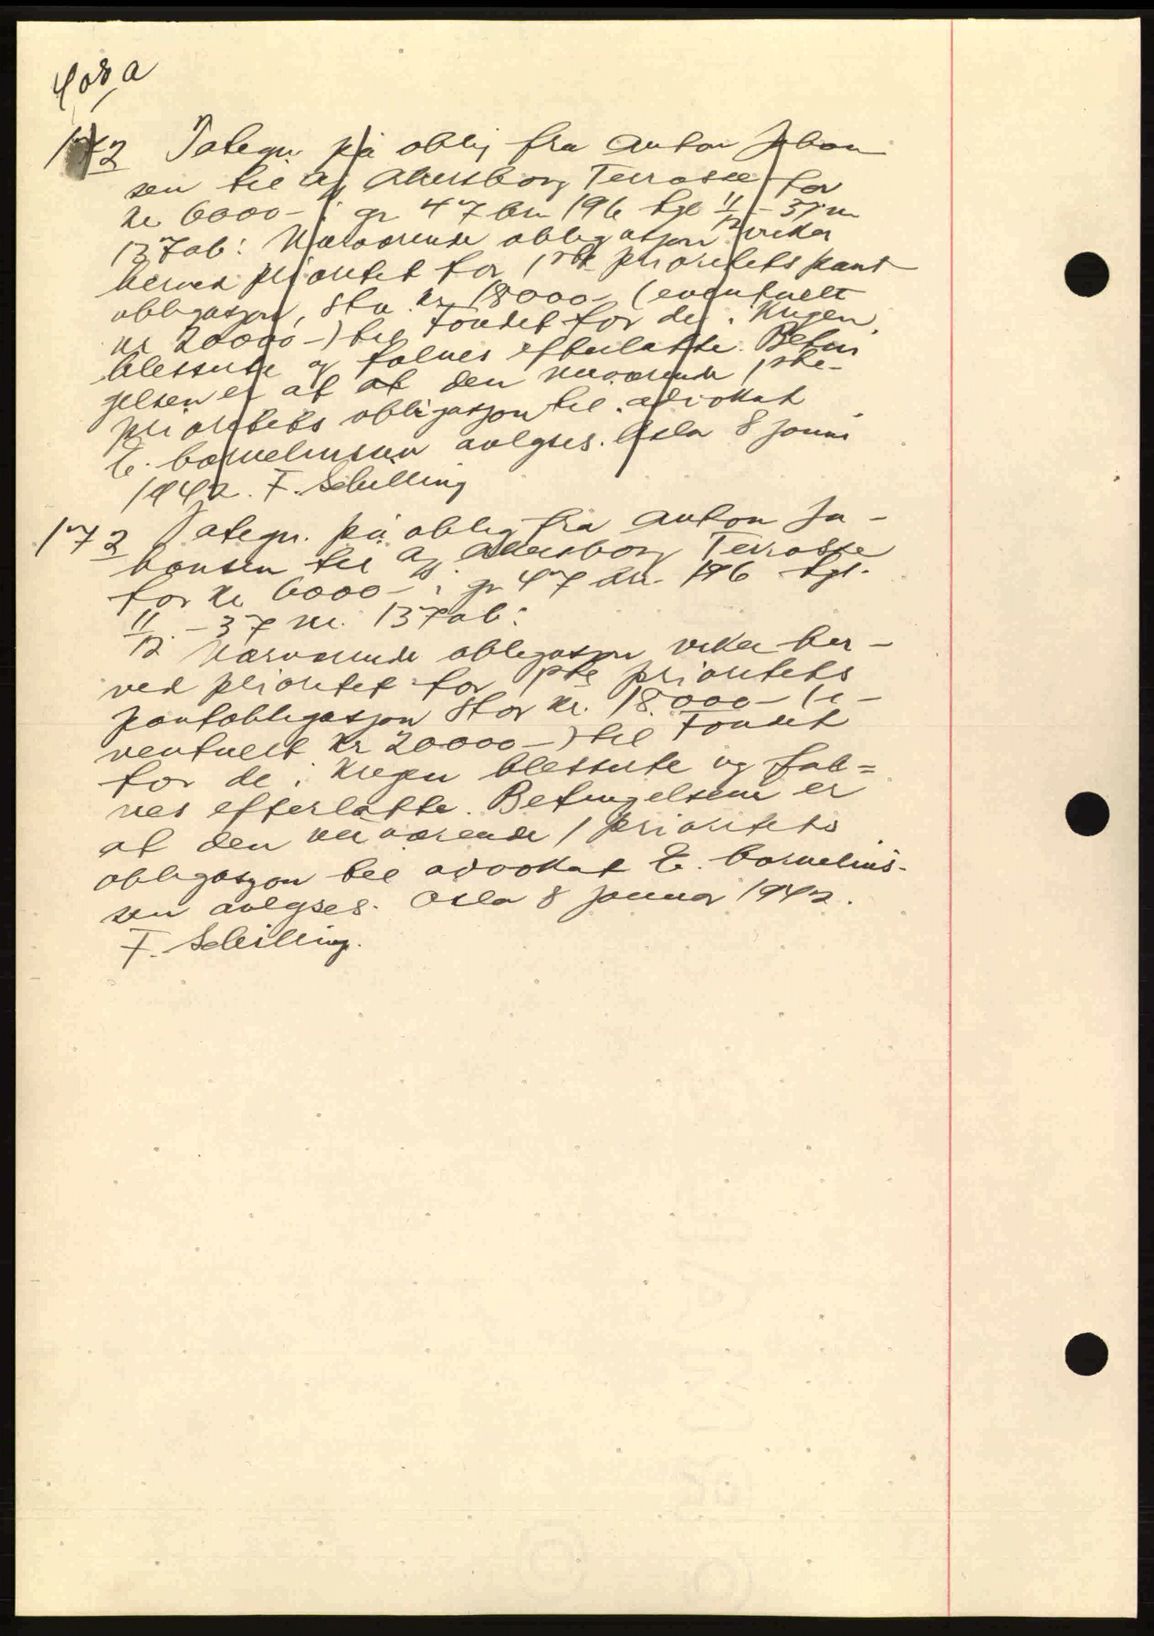 408 a
172 Påtegn. på oblig fra Anton Johan
sen til A/s Akersborg Terrasse for
kr 6000- i gr 47 bn 196 tgl 11/12 - 37 nr
137ab: Nærværende obligasjon viker
herved prioritet for 1ste prioritets pant
obligasjon, stor kr. 18000- (eventuelt
kr 20000-) til Fondet for de i Krigen
blesserte og falnes efterlatte. Betin
gelsen er at at den nuværende 1ste
prioritets obligasjon til advokat
E. Cornelinssen avlyses. Oslo 8 januar
1942. F. Schilling
172 Påtegn. på oblig fra Anton Jo-
hansen til A/s Akersborg Terrasse
for kr 6000- i gr 47 bn. 196 tgl.
11/12 - 37 nr. 137ab:
Nærværende obligasjon viker her-
ved prioritet for 1ste prioritets
pantobligasjon stor kr. 18.000- (e-
ventuelt kr 20000-) til Fondet
for de i Krigen blesserte og fal=
nes efterlatte. Betingelsene er
at den nuværende 1 prioritets
obligasjon til advokat E. Cornelius-
sen avlyses. Oslo 8 januar 1942.
F. Schilling.